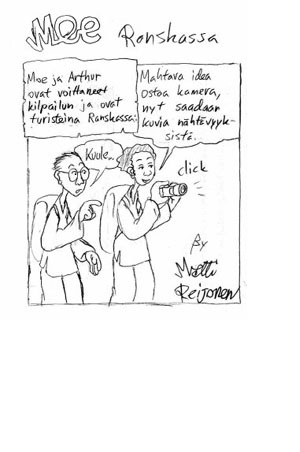 Moe Ranskassa
Moe ja Arthur
ovat voittaneet
kilpailun ja ovat
turisteina Ranskassa.
Mahtava idea
ostaa kamera,
nyt saadaan
kuvia nähtävyyk-
sistä.
Kuule...
click
By
Matti
Reijonen